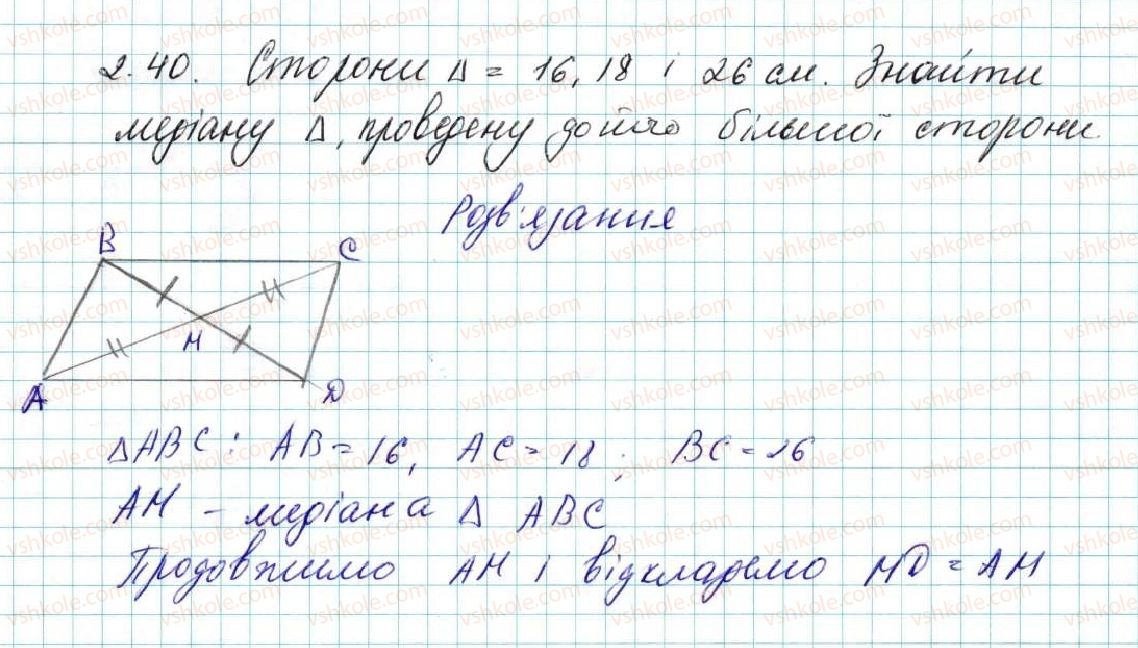 2.40. Сторони Δ = 16, 18 і 26 см. Знайти
медіану Δ, проведену до його більшої сторони.
Розв'язання
B
C
M
A
D
ΔABC: AB = 16, AC = 18; BC = 26
AM - медіана Δ ABC
Продовжимо AM і відкладемо MD = AM
vshkole.com